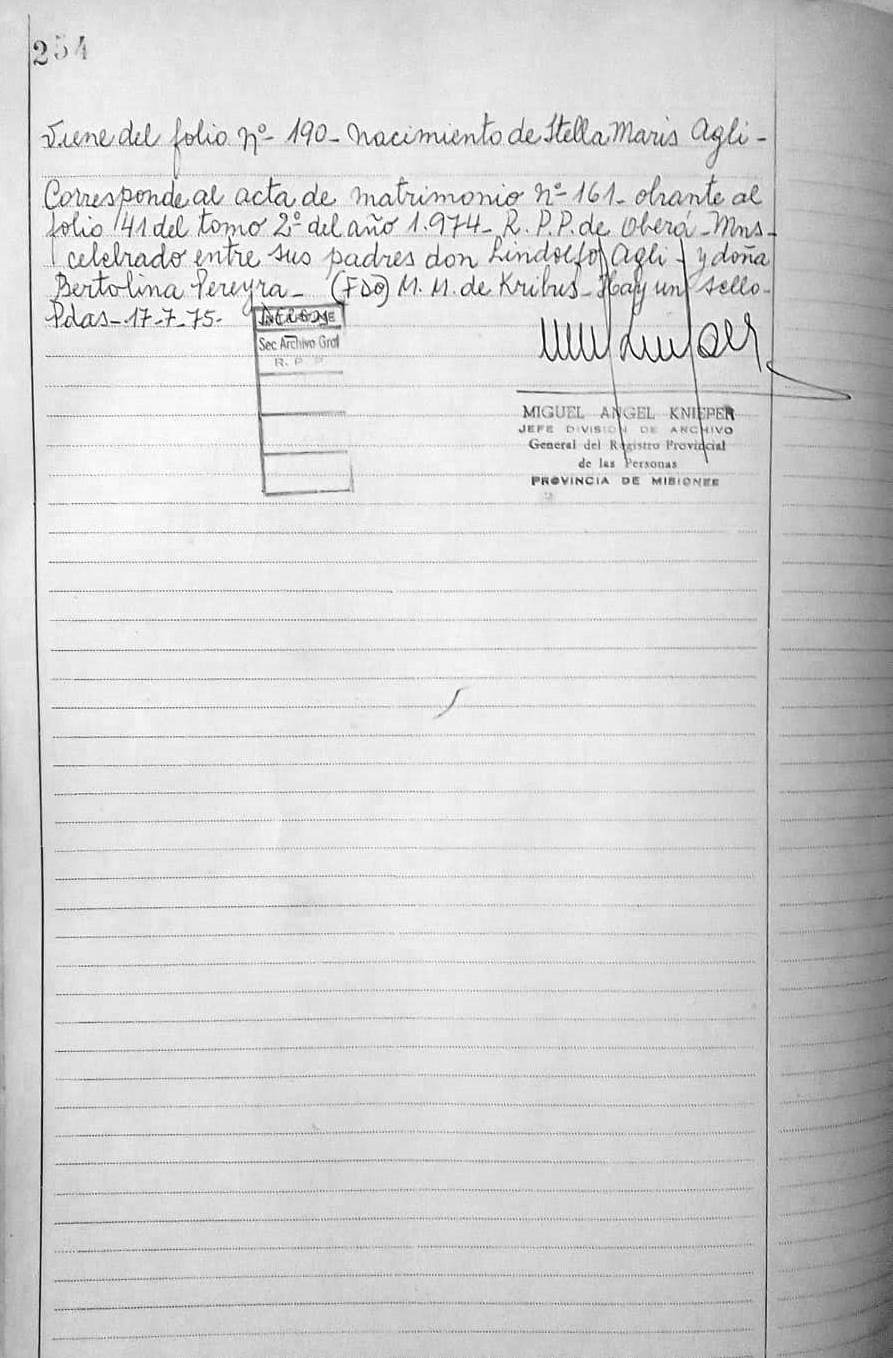 254
Viene del folio nº- 190- Nacimiento de Stella Maris Agli-
Corresponde al acta de matrimonio nº-161- obrante al
folio 141 del tomo 2º del año 1.974- R.P.P. de Oberá-Mns-
celebrado entre sus padres don Lindolfo Agli - y doña
Bertolina Pereyra- (FDO) M. M. de Kribus- Hay un sello-
Pdas-17-7-75-
Sec Archivo Gral
R. P. P.
MIGUEL ANGEL KNIEPER
JEFE DIVISION DE ARCHIVO
General del Registro Provincial
de las Personas
PROVINCIA DE MISIONES